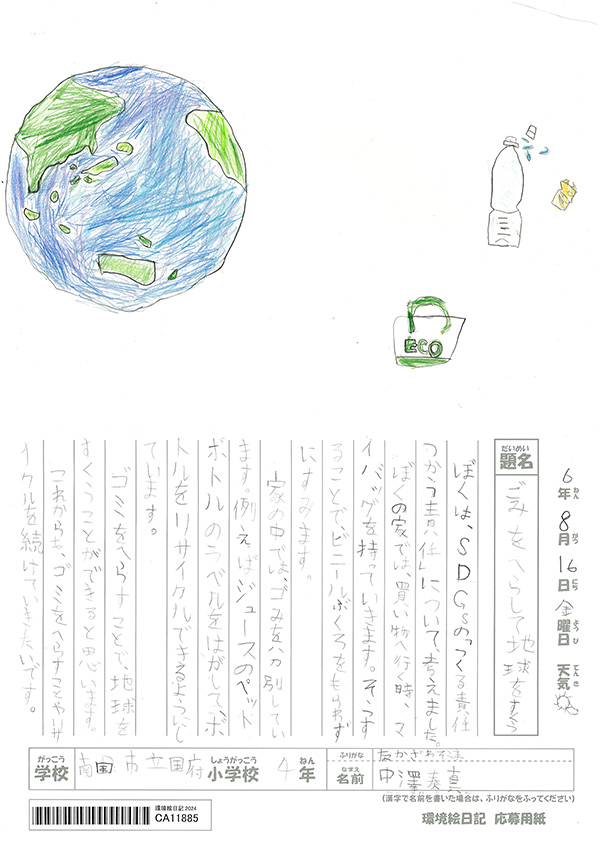 ECO
6年8月16日金曜日 天気
ねん がつ にち ようび てんき
だいめい
題名 ごみをへらして地球をすくう
ぼくは、SDGsの「つくる責任
つかう責任」について、考えました。
ぼくの家では、買い物へ行く時、マ
イバッグを持っていきます。そうす
ることで、ビニールぶくろをもらわず
にすみます。
家の中では、ゴみを分別してい
ます。例えばジュースのペット
ボトルのラベルをはがして、ボ
トルをリサイクルできるようにし
ています。
ゴミをへらすことで、地球を
すくうことができると思います。
これからも、ゴミをへらすことやリサ
イクルを続けていきたいです。
がっこう しょうがっこう ねん
学校 南国市立国府小学校 4年
ふりがな
なまえ
名前 中澤 真
(漢字で名前を書いた場合は、ふりがなをふってください)
環境絵日記2024
CA11885
環境絵日記 応募用紙